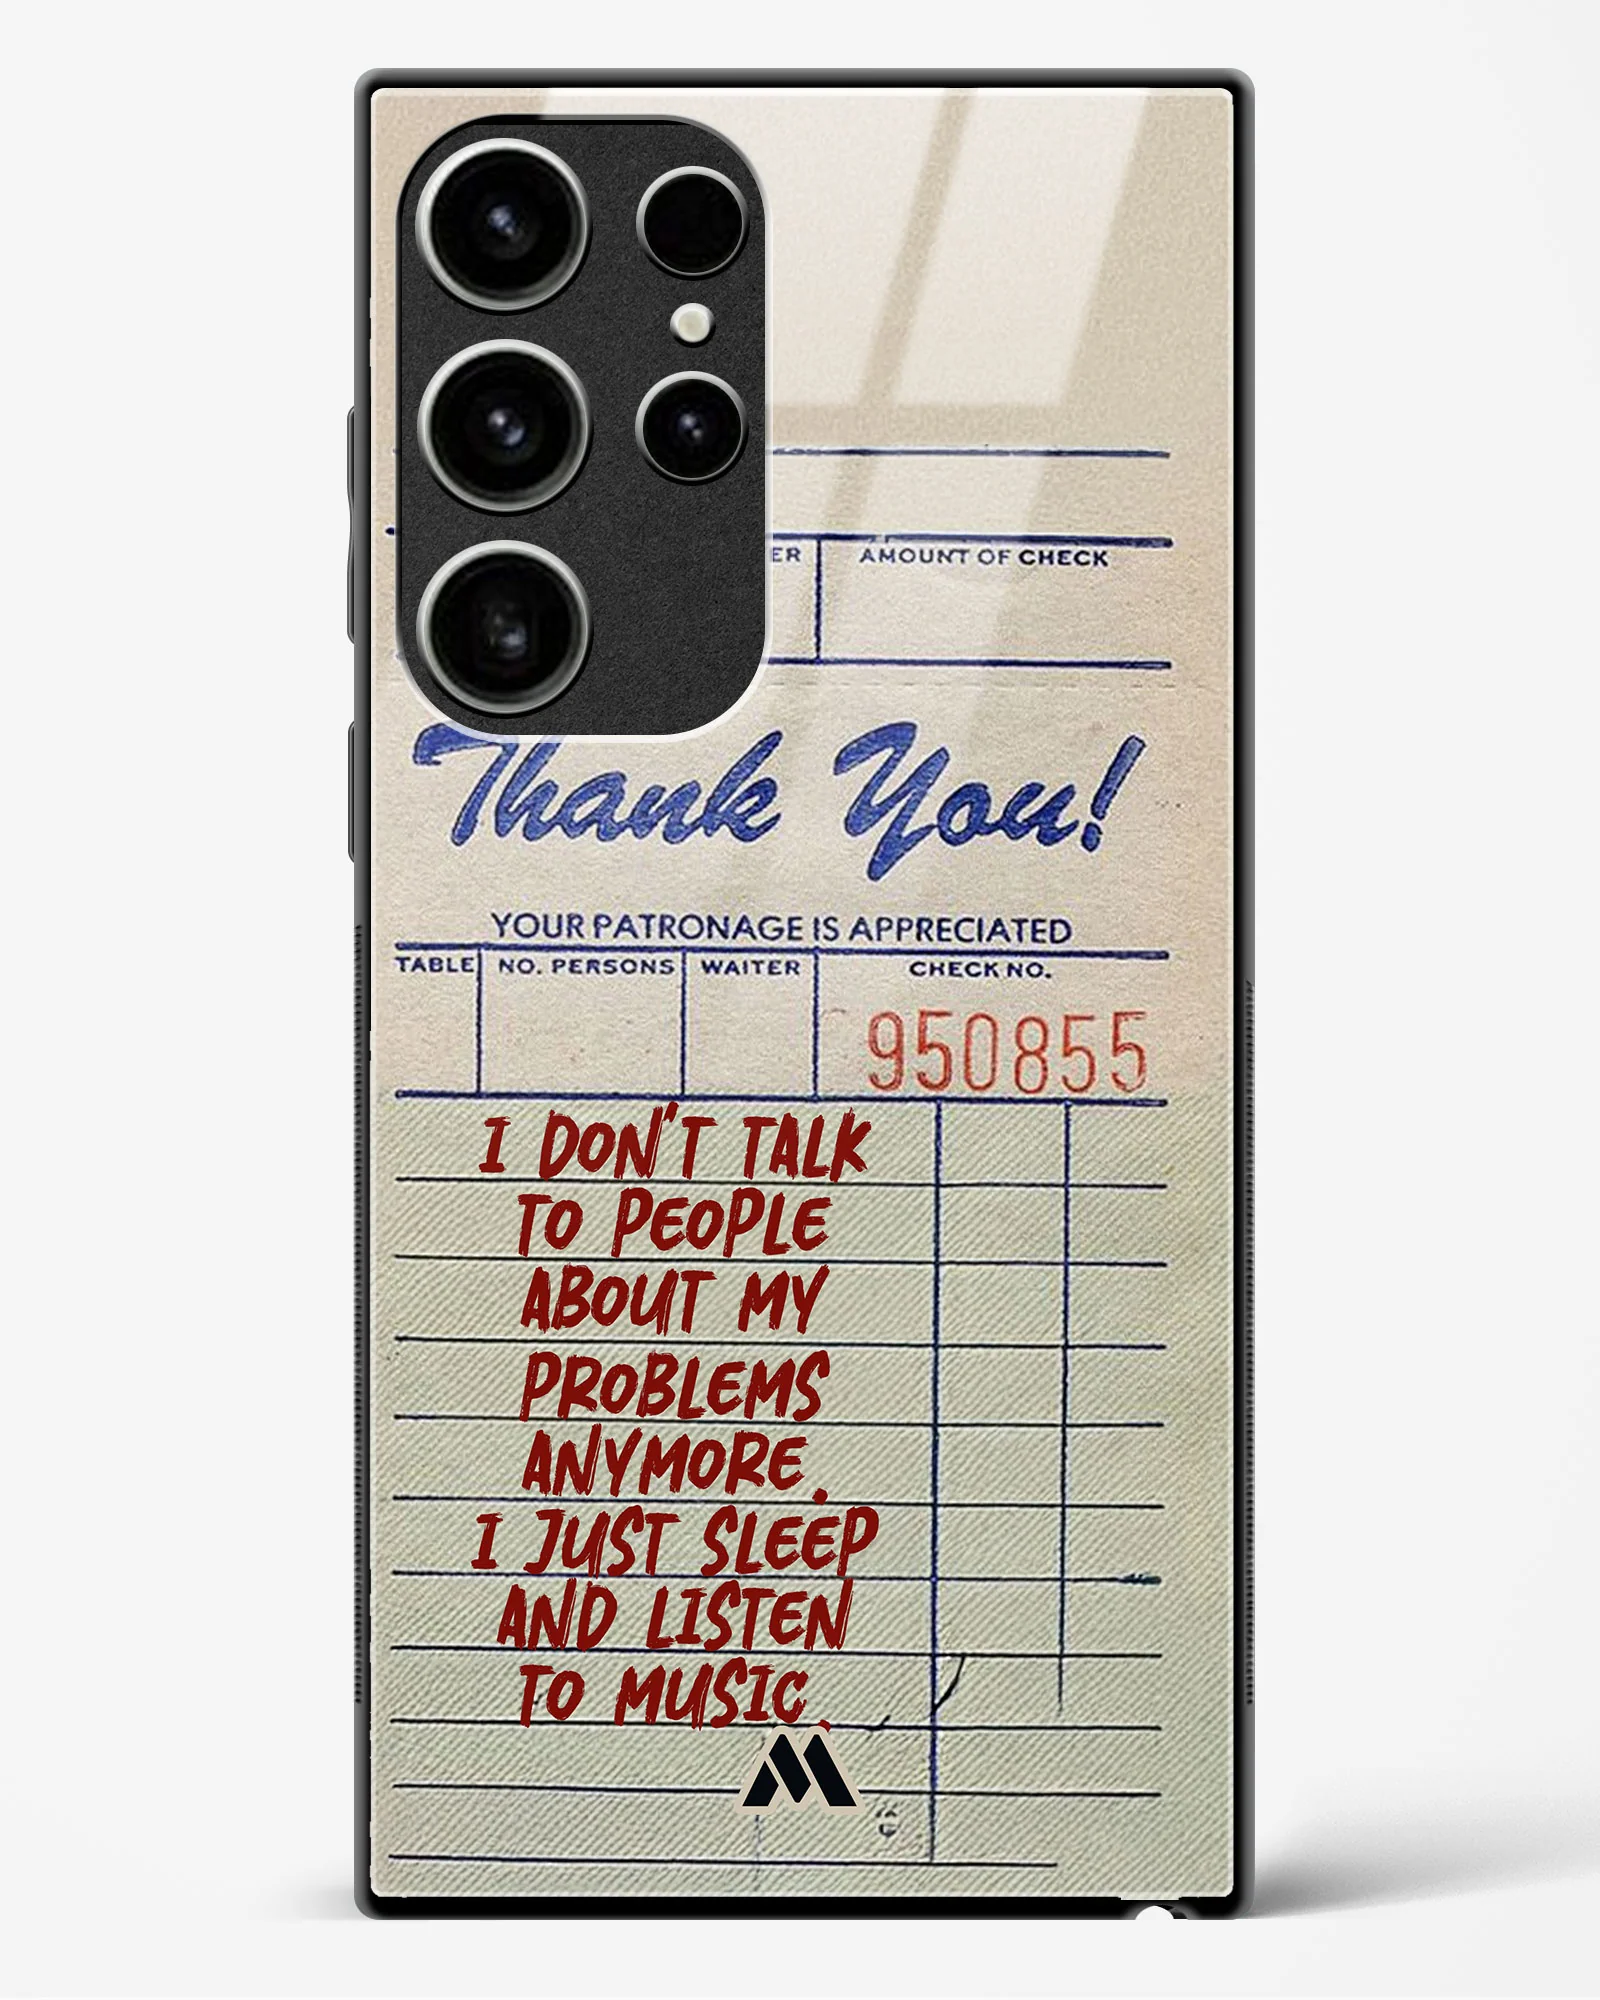 ER AMOUNT OF CHECK
Thank You!
YOUR PATRONAGE IS APPRECIATED
TABLE NO. PERSONS WAITER CHECK NO.
950855
I DON'T TALK
TO PEOPLE
ABOUT MY
PROBLEMS
ANYMORE.
I JUST SLEEP
AND LISTEN
TO MUSIC.